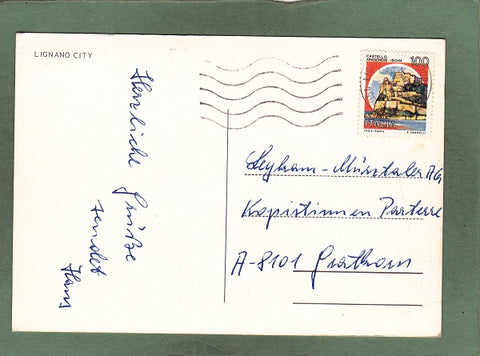 LIGNANO CITY
Herzliche Grüße
sendet
Hans
CASTELLO
ARAGONESE - ISCHIA
100
ITALIA
Leykam-Mürztaler AG
Kopistinnen Parterre
A-8101 Gratkorn